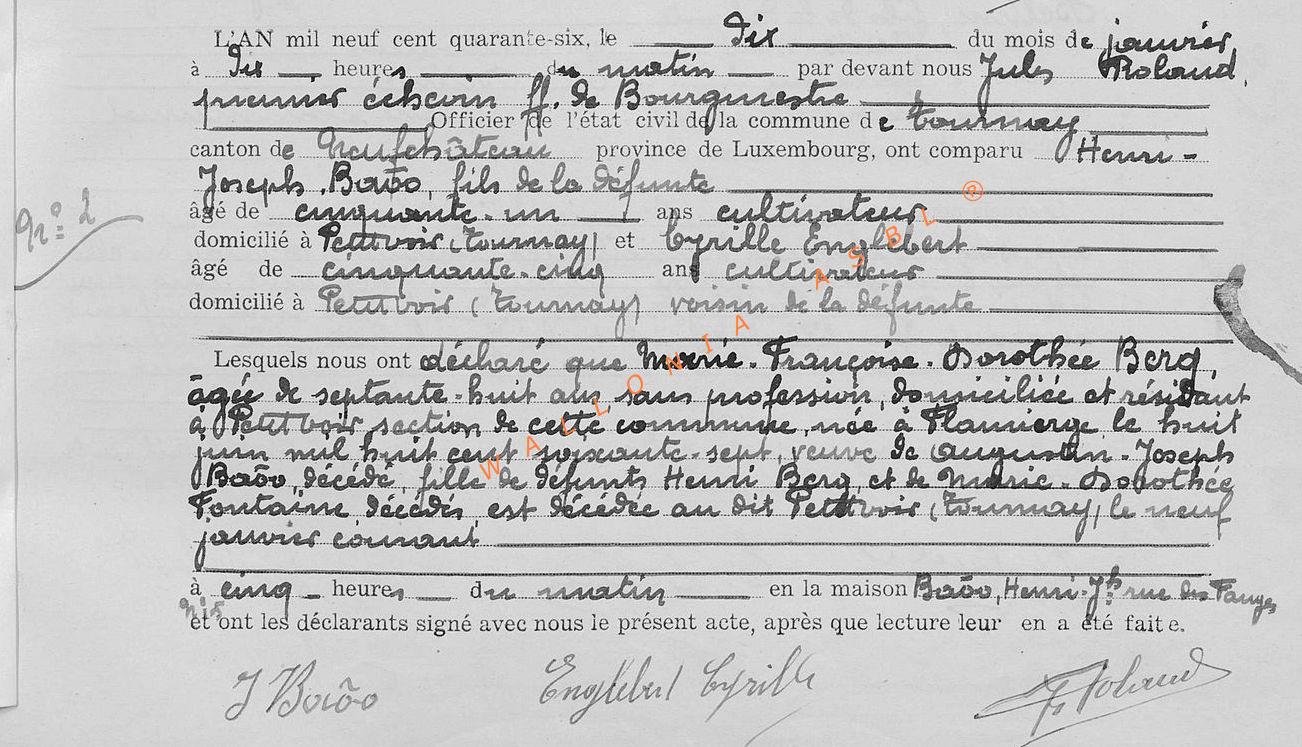 L'AN mil neuf cent quarante-six, le dix du mois de janvier,
à dix heures du matin par devant nous Jules Roland,
premier échevin ff. de Bourgmestre
Officier de l'état civil de la commune de Tournay
canton de Neufchâteau province de Luxembourg, ont comparu Henri-
Joseph, fils de la défunte
âgé de cinquante-un ans cultivateur
domicilié à Petitvoir (Tournay) et Cyrille Englebert
âgé de cinquante-cinq ans cultivateur
domicilié à Petitvoir (Tournay) voisin de la défunte
n° 2
Lesquels nous ont déclaré que Marie-Françoise-Dorothée Berg,
âgée de septante-huit ans sans profession, domiciliée et résidant
à Petitvoir section de cette commune, née à Flamierge le huit
juin mil huit cent soixante-sept, veuve de Augustin-Joseph
décédé, fille de défunts Henri Berg et de Marie-Dorothée
Fontaine décédés, est décédée au dit Petitvoir (Tournay) le neuf
janvier courant
à cinq heures du matin en la maison Henri-Jh rue des Fanges
n° 5
et ont les déclarants signé avec nous le présent acte, après que lecture leur en a été faite.
J Englebert Cyrille J. Roland
WALLONIA ASBL ®